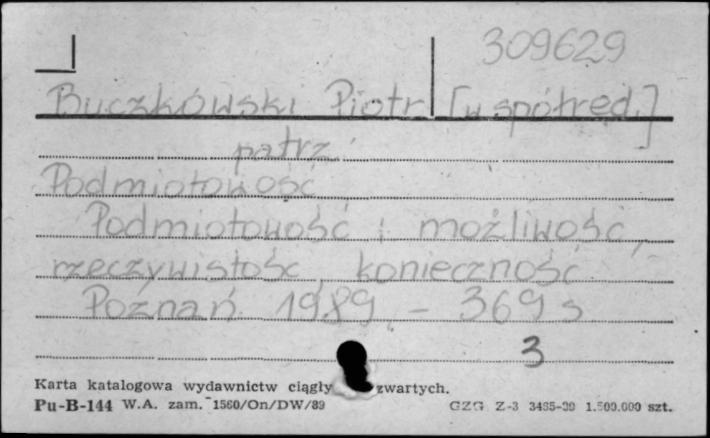 309629
Buczkówski Piotr [współred.]
patrz
Podmiotowość
Podmiotowość : możliwość,
rzeczywistość, konieczność
Poznań 1989. - 369 s
3
Karta katalogowa wydawnictw ciągły zwartych.
Pu-B-144 W.A. zam. 1560/On/DW/89 GZG Z-3 1.500.000 szt.